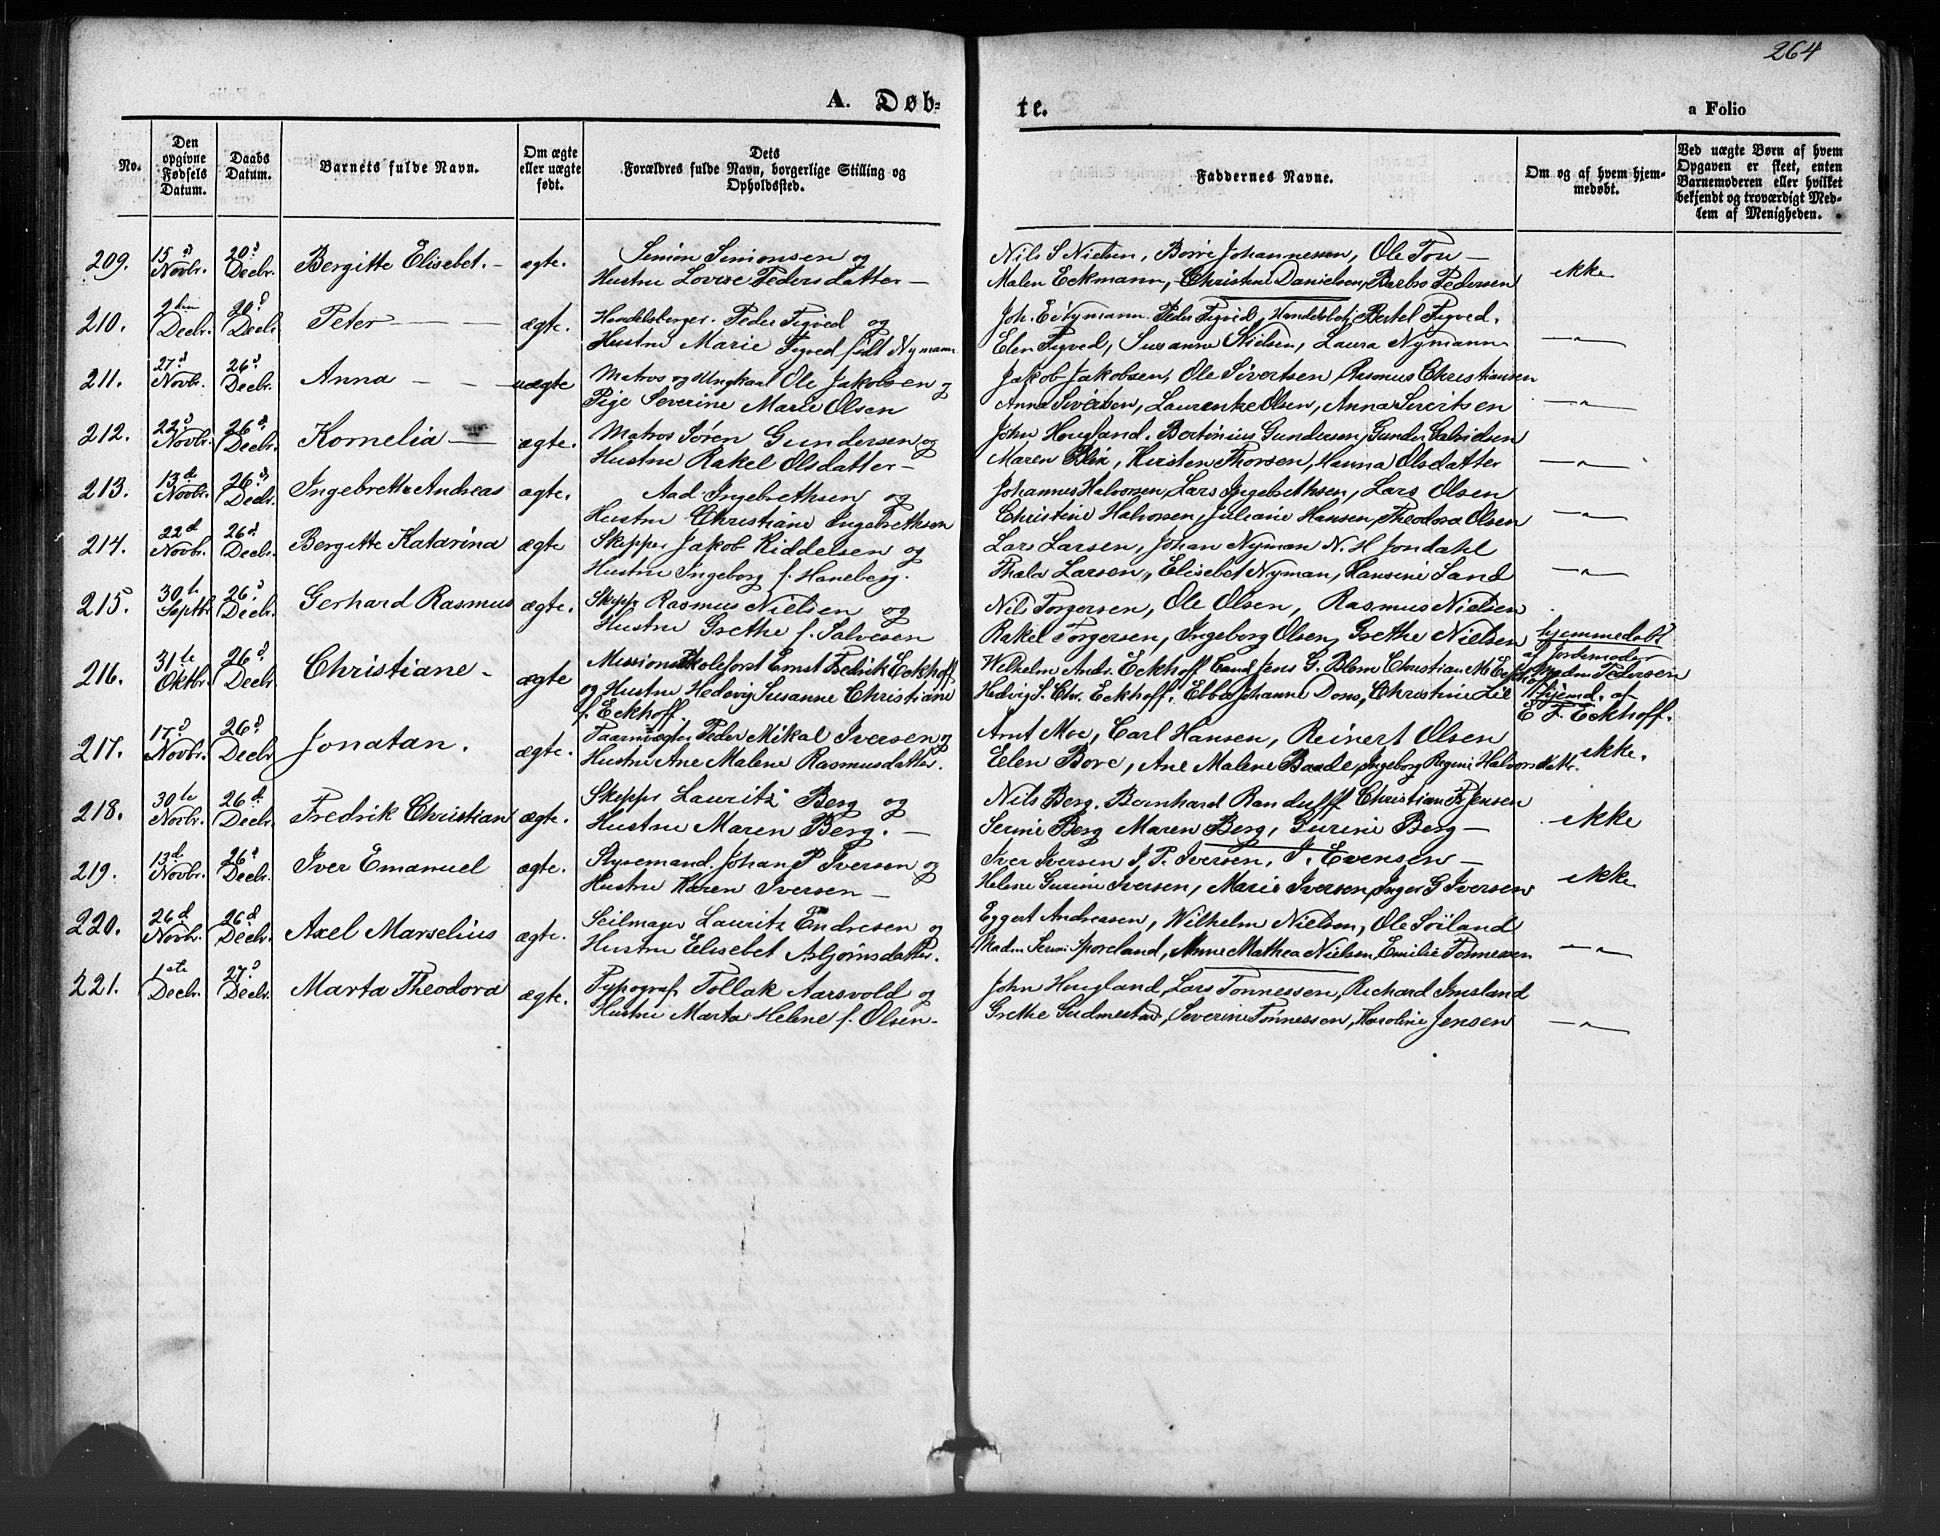 264
A. Døb-
te.
a Folio
No.
Den opgivne Fødsels Datum.
Daabs Datum.
Barnets fulde Navn.
Om ægte eller uægte født.
Dets Forældres fulde Navn, borgerlige Stilling og Opholdssted.
Faddernes Navne.
Om og af hvem hjemmedøbt.
Ved uægte Børn af hvem Opgaven er skeet, enten Barnemoderen eller hvilket bekjendt og troværdigt Medlem af Menigheden.
209. 15d Novbr. 20d Decbr. Bergitte Elisebet. — ægte. Simon Simonsen og
Hustru Lovise Pedersdatter —
Nils S Nielsen, Børre Johannesen, Ole Tou —
Malen Eckmann, Christine Danielsen, Barbro Pedersen
ikke
210. 2den Decbr. 20d Decbr. Peter — — ægte. Handelsborger Peder Figved og
Hustru Marie Figved født Nymann
Joh. E Nymann Peder Figved, Handelsbetj Bertel Figved.
Elen Figved, Susanne Nielsen, Laura Nymann
— " —
211. 27d Novbr. 26d Decbr. Anna — — uægte Matros og Ungkarl Ole Jakobsen og
Pige Severine Marie Olsen
Jakob Jakobsen, Ole Sivertsen, Rasmus Christiansen
Anna Sivertsen, Laurentze Olsen, Anna Sivertsen
— " —
212. 22d Novbr. 26d Decbr. Kornelia — ægte. Matros Søren Gundersen og
Hustru Rakel Olsdatter —
John Hougland. Bertinius Gundersen, Gunder Gabrielsen
Maren Blix, Kirsten Thorsen, Hanna Olsdatter
— " —
213. 13d Novbr. 26d Decbr. Ingebreth Andreas ægte. Aad Ingebrethsen og
Hustru Christiane Ingebrethsen
Johannes Halvorsen, Lars Ingebrethsen, Lars Olsen
Christine Halvorsen, Juliane Hansen, Theodora Olsen
— " —
214. 22d Novbr. 26d Decbr. Bergitte Katarina ægte Skipper Jakob Riddelsen og
Hustru Ingeborg f. Haneberg.
Lars Larsen, Johan Nyman N. H Jondahl
Thala Larsen, Elisebet Nyman, Hansine Sand
— " —
215. 30te Septbr 26d Decbr. Gerhard Rasmus ægte. Skippr Rasmus Nielsen og
Hustru Grethe f. Salvesen
Nils Torgersen, Ole Olsen, Rasmus Nielsen
Rakel Torgersen, Ingeborg Olsen, Grethe Nielsen
hjemmedøbt
af Jordemoder
Madm Pedersen
216. 31te Oktbr. 26d Decbr. Christiane — ægte Missionsskoleforst Ernst Fredrik Eckhoff
og Hustru Hedevig Susanne Christiane
f. Eckhoff.
Wilhelm Andr. Eckhoff Cand Jens G. Blom Christian M Eckhoff
Hedvig S. Chr. Eckhoff. Ebba Johanne Dons, Christine Lie
hjemd. af
E F. Eckhoff.
217. 17d Novbr. 26d Decbr. Jonatan. ægte. Taarnvægter Peder Mikal Iversen og
Hustru Ane Malene Rasmusdatter.
Arnt Moe, Carl Hansen, Reinert Olsen
Elen Bore, Ane Malene Baade, Ingeborg Regine Halvorsdattr.
ikke.
218. 30te Novbr. 26d Decbr. Fredrik Christian ægte. Skipper Lauritz Berg og
Hustru Maren Berg. —
Nils Berg. Bernhard Randulff Christian F Jensen
Serine Berg Maren Berg, Gurine Berg —
ikke
219. 13d Novbr. 26d Decbr. Iver Emanuel ægte. Styremand. Johan P Iversen og
Hustru Karen Iversen —
Iver Iversen J. P. Iversen, J. Evensen —
Helene Gurine Iversen, Marie Iversen, Inger G Iversen
ikke
220. 26d Novbr. 26d Decbr. Axel Marselius ægte. Seilmager Lauritz Endresen og
Hustru Elisebet Asbjørnsdatter.
Eggert Andreasen, Wilhelm Nielsen, Ole Soiland
Madm Serine Sporeland, Anne Mathea Nielsen, Emilie Tonnessen
— " —
221. 1ste Decbr. 27d Decbr. Marta Theodora ægte. Typograf Tollak Aarsvold og
Hustru Marta Helene f. Olsen —
John Hougland, Lars Tonnessen, Richard Imsland
Grethe Gudmestad, Severine Tonnessen, Karoline Jensen
— " —